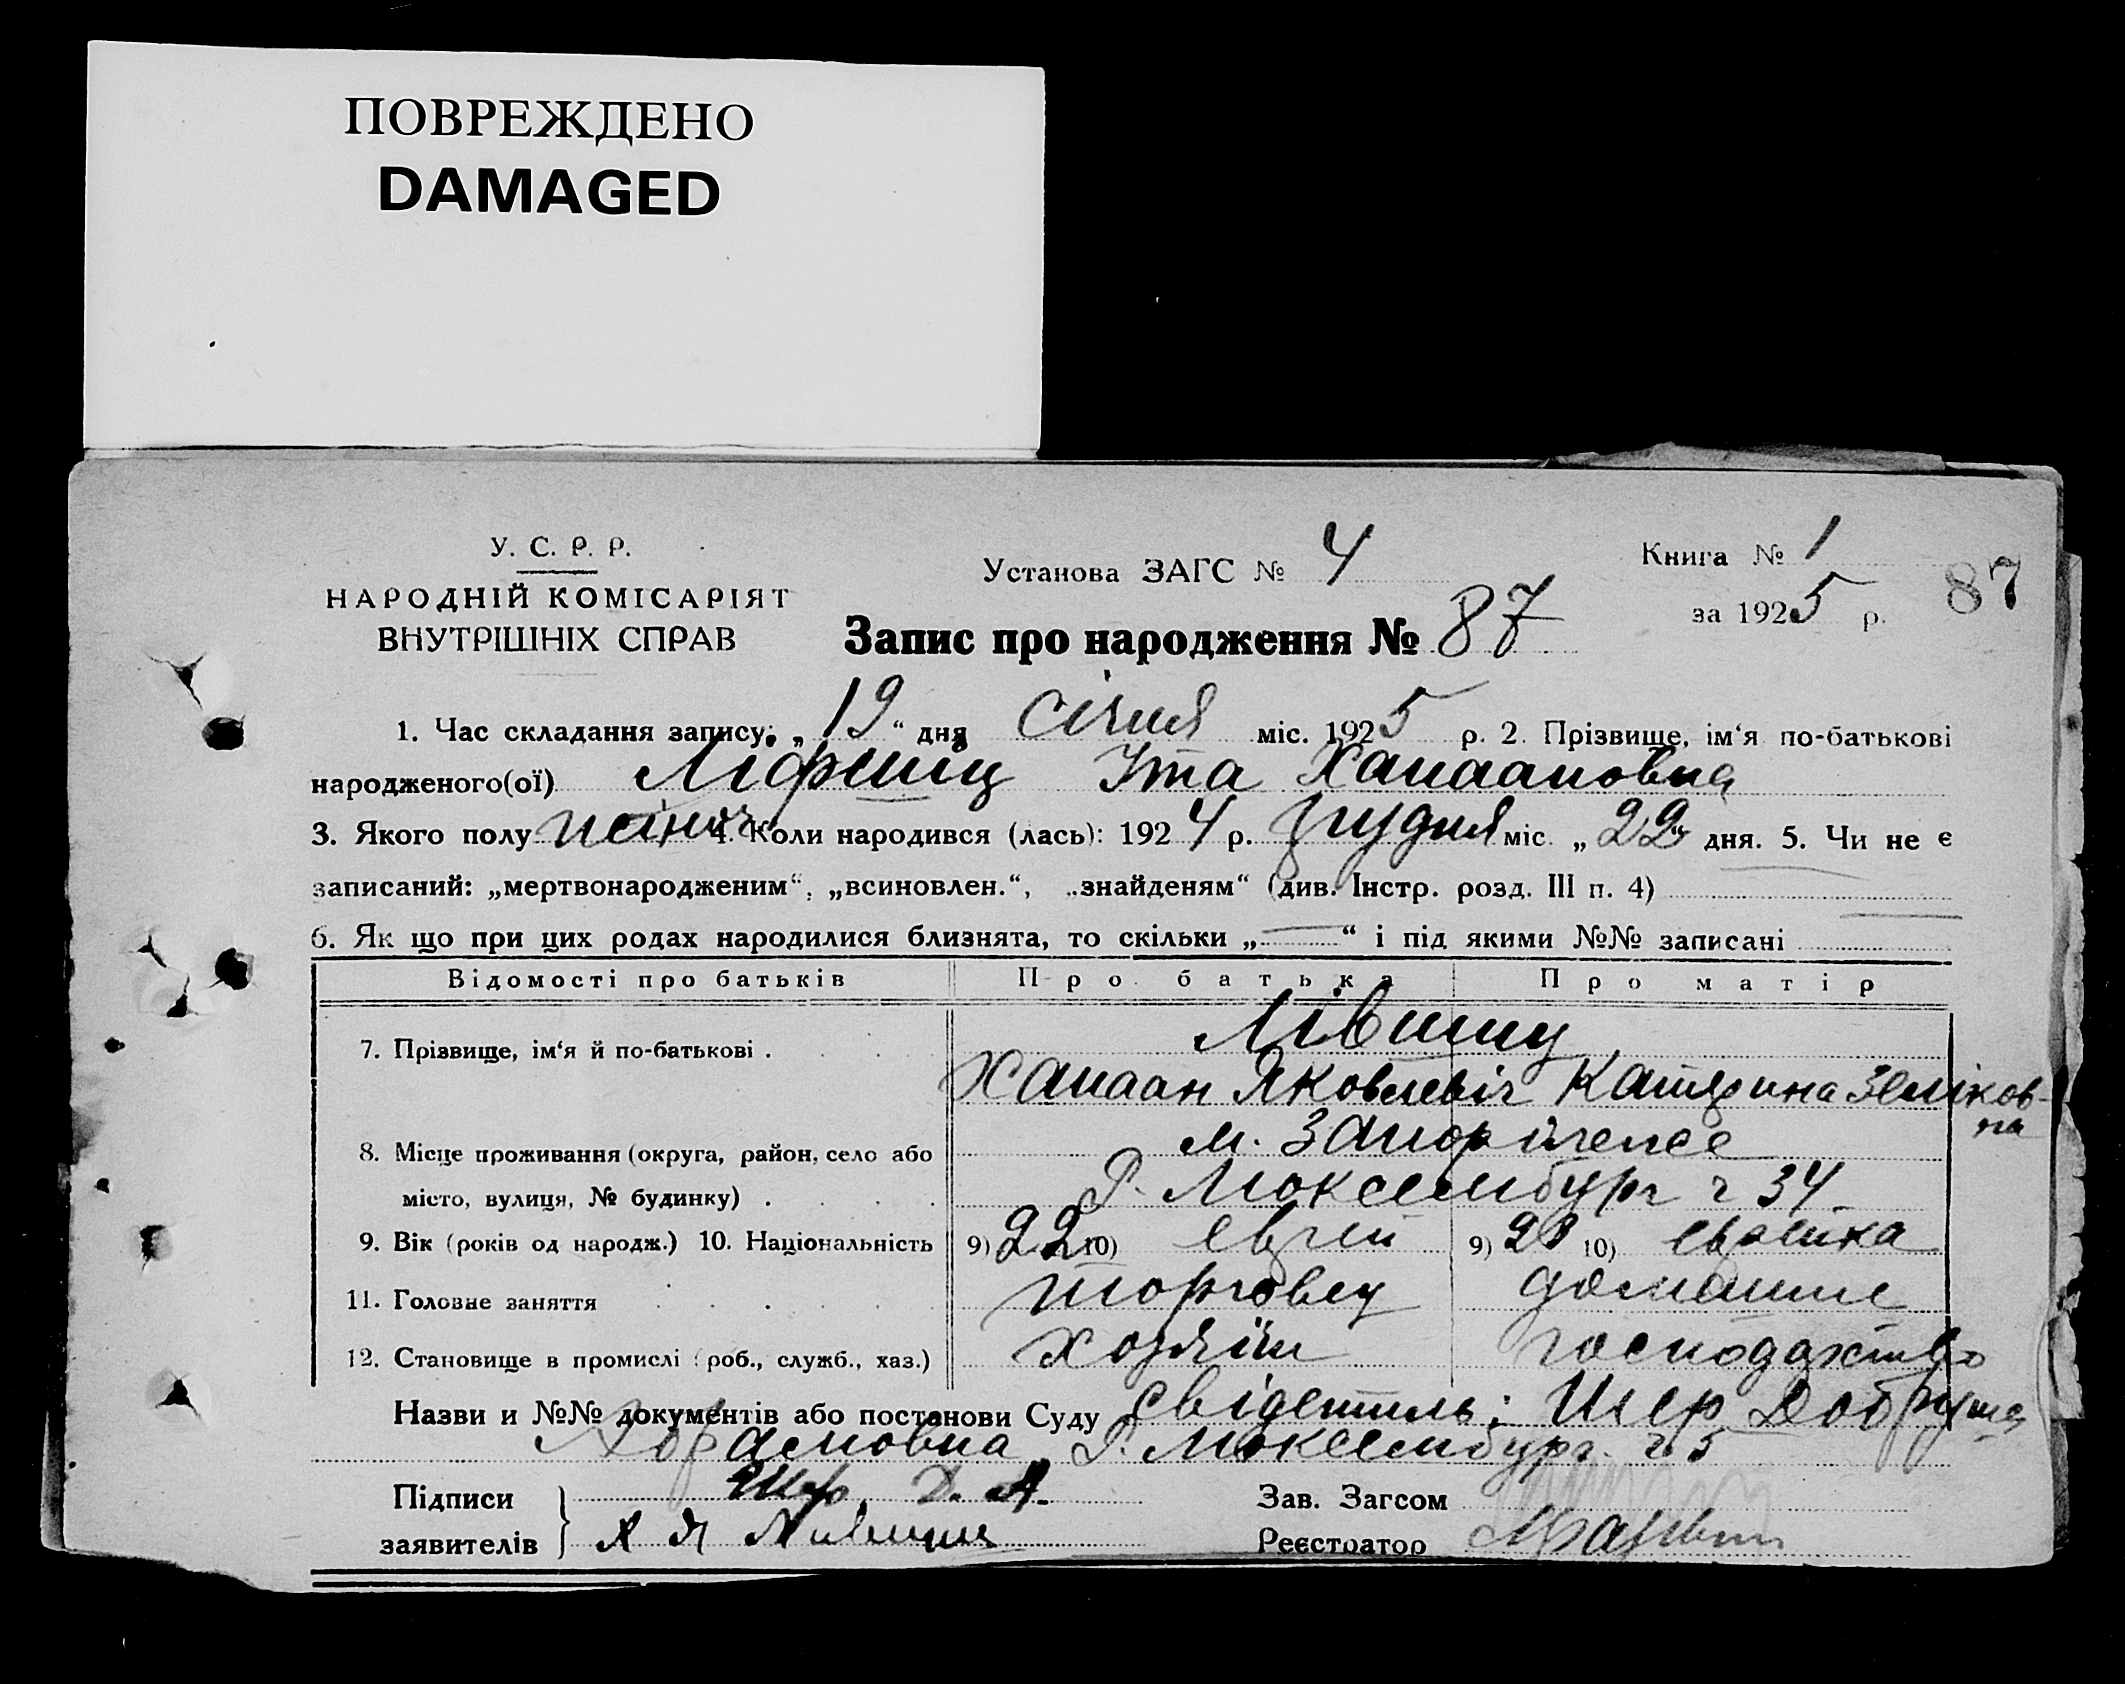 ПОВРЕЖДЕНО
DAMAGED
У. С. Р. Р.
НАРОДНІЙ КОМІСАРІЯТ
ВНУТРІШНІХ СПРАВ
Установа ЗАГС № 4
Книга № 1
за 1925 р.
87
Запис про народження № 87
1. Час складання запису: „19“ дня січня міс. 1925 р. 2. Прізвище, ім‘я по-батькові
народженого(ої) Ліфшиц Ита Ханаановна
3. Якого полу жіноч 4. Коли народився (лась): 1924 р. грудня міс. „22“ дня. 5. Чи не є
записаний: „мертвонародженим“, „всиновлен.“, „знайденям“ (див. Інстр. розд. III п. 4)
6. Як що при цих родах народилися близнята, то скільки „—“ і під якими №№ записані
Відомості про батьків Про батька Про матір
7. Прізвище, ім‘я й по-батькові . Лівшиц
Ханаан Яковлевіч Катерина Зеліков-
на
8. Місце проживання (округа, район, село або м. Запоріжжє
місто, вулиця, № будинку) . Р. Люксембург ч 34
9. Вік (років од народж.) 10. Національність 9) 22 10) еврей 9) 28 10) еврейка
11. Головне заняття торговец домашнє
12. Становище в промислі (роб., служб., хаз.) хозяїн господарство
Назви и №№ документів або постанови Суду Свідетиль: Шер Добруша
Абрамовна Р. Люксембург. ч 5
Підписи Шер. Д. А.
заявителів Х Я Лившиц
Зав. Загсом
Реєстратор